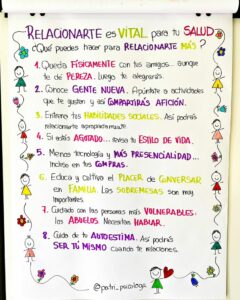 RELACIONARTE es VITAL para tu SALUD
¿Qué puedes hacer para RELACIONARTE MÁS?
1. Queda FÍSICAMENTE con tus amigos... aunque
te dé PEREZA. Luego te alegrarás.
2. Conoce GENTE NUEVA. Apúntate a actividades
que te gustan y así COMPARTIRÁS AFICIÓN.
3. Entrena tus HABILIDADES SOCIALES. Así podrás
relacionarte apropiadamente.
4. Si estás AGOTADO... revisa tu ESTILO DE VIDA.
5. Menos tecnología y MÁS PRESENCIALIDAD...
Incluso en tus COMPRAS.
6. Educa y cultiva el PLACER de CONVERSAR
en FAMILIA. Las SOBREMESAS son muy
importantes.
7. Cuidado con las personas más VULNERABLES:
los ABUELOS Necesitan HABLAR.
8. Cuida de tu AUTOESTIMA. Así podrás
SER TÚ MISMO cuando te relaciones.
@patri_psicologa